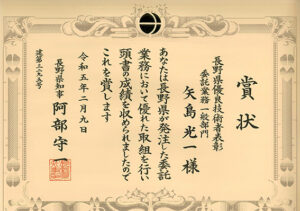 賞状
長野県優良技術者表彰
委託業務一般部門
矢島光一様
あなたは長野県が発注した委託
業務において優れた取組を行い
頭書の成績を収められましたので
これを賞します
令和五年二月九日
長野県知事 阿部守一